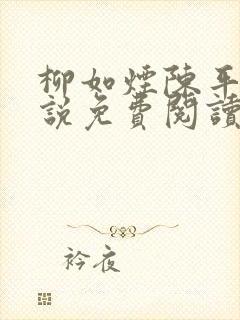 柳如煙陳平
說免費閱讀
衿夜